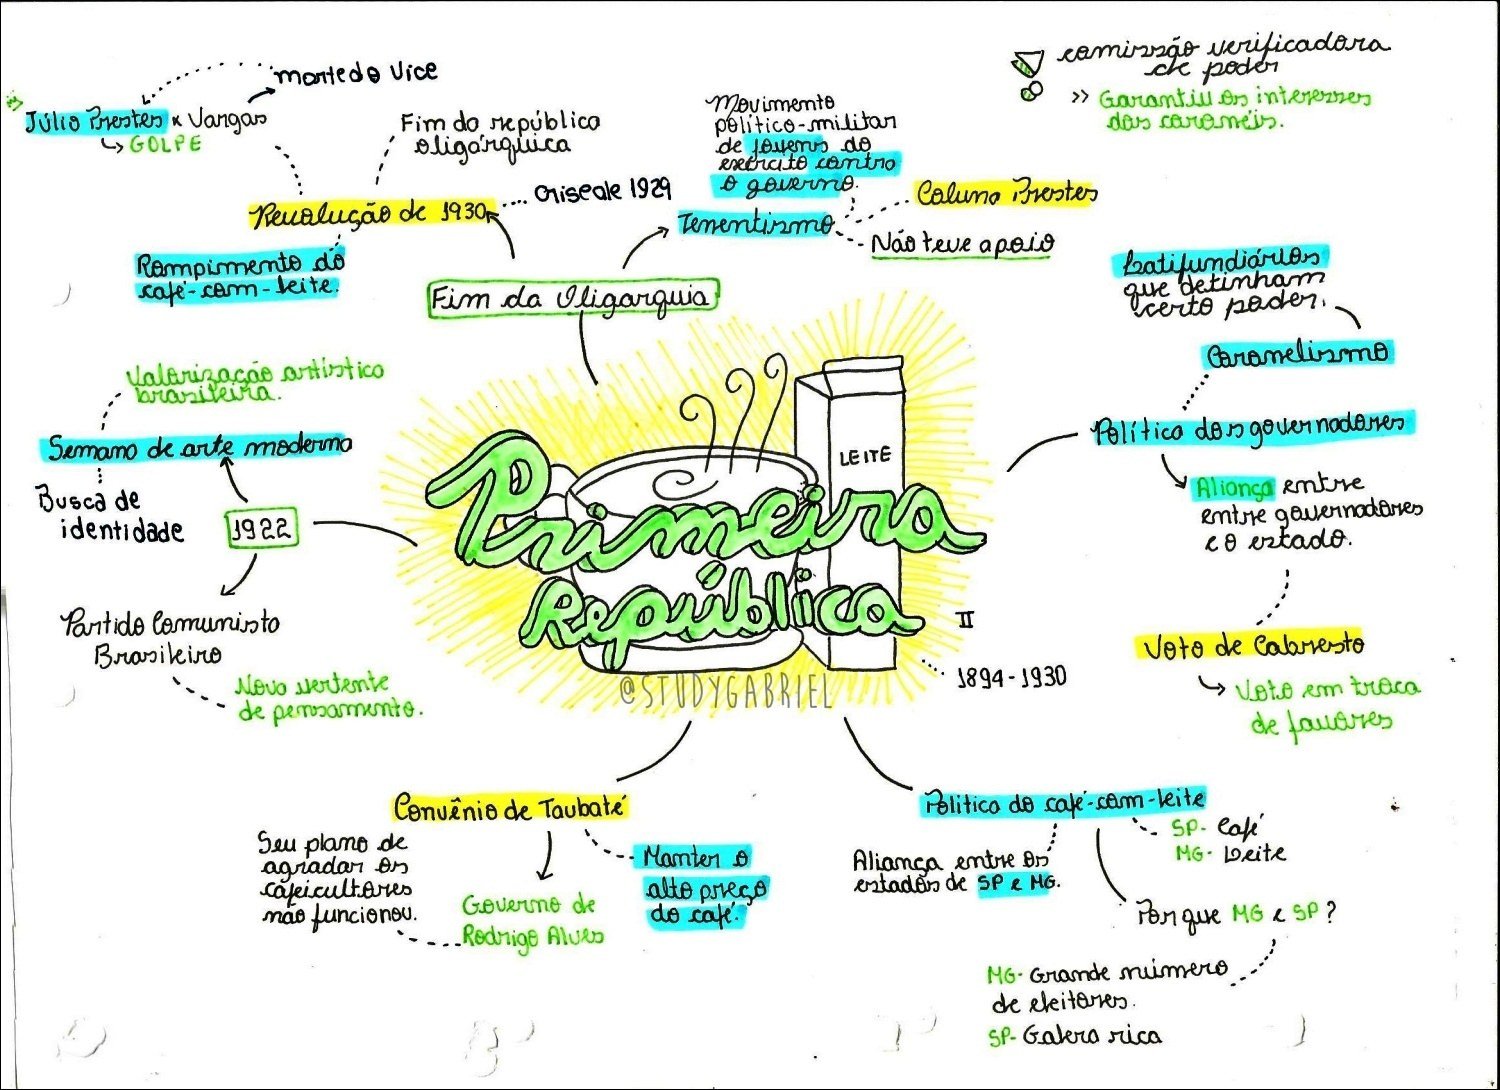 morte do vice
Júlio Prestes x Vargas
GOLPE
Fim da república
oligárquica
crise de 1929
Revolução de 1930
Rompimento do
café-com-leite.
Fim da Oligarquia
Movimento
político-militar
de jovens do
exército contra
o governo.
Tenentismo
Coluna Prestes
Não teve apoio
comissão verificadora
de poder
>> Garantiu os interesses
dos coronéis.
Latifundiários
que detinham
certo poder.
Coronelismo
Política dos governadores
Aliança entre
entre governadores
e o estado.
Voto de Cabresto
Voto em troca
de favores
Valorização artística
brasileira.
Semana de arte moderna
Busca de
identidade
1922
Partido Comunista
Brasileiro
Nova vertente
de pensamento.
LEITE
Primeira
República
II
1894-1930
@STUDYGABRIEL
Convênio de Taubaté
Seu plano de
agradar os
cafeicultores
não funcionou.
Governo de
Rodrigo Alves
Manter o
alto preço
do café.
Política do café-com-leite
SP- Café
MG- Leite
Aliança entre os
estados de SP e MG.
Por que MG e SP?
MG- Grande número
de eleitores.
SP- Galera rica